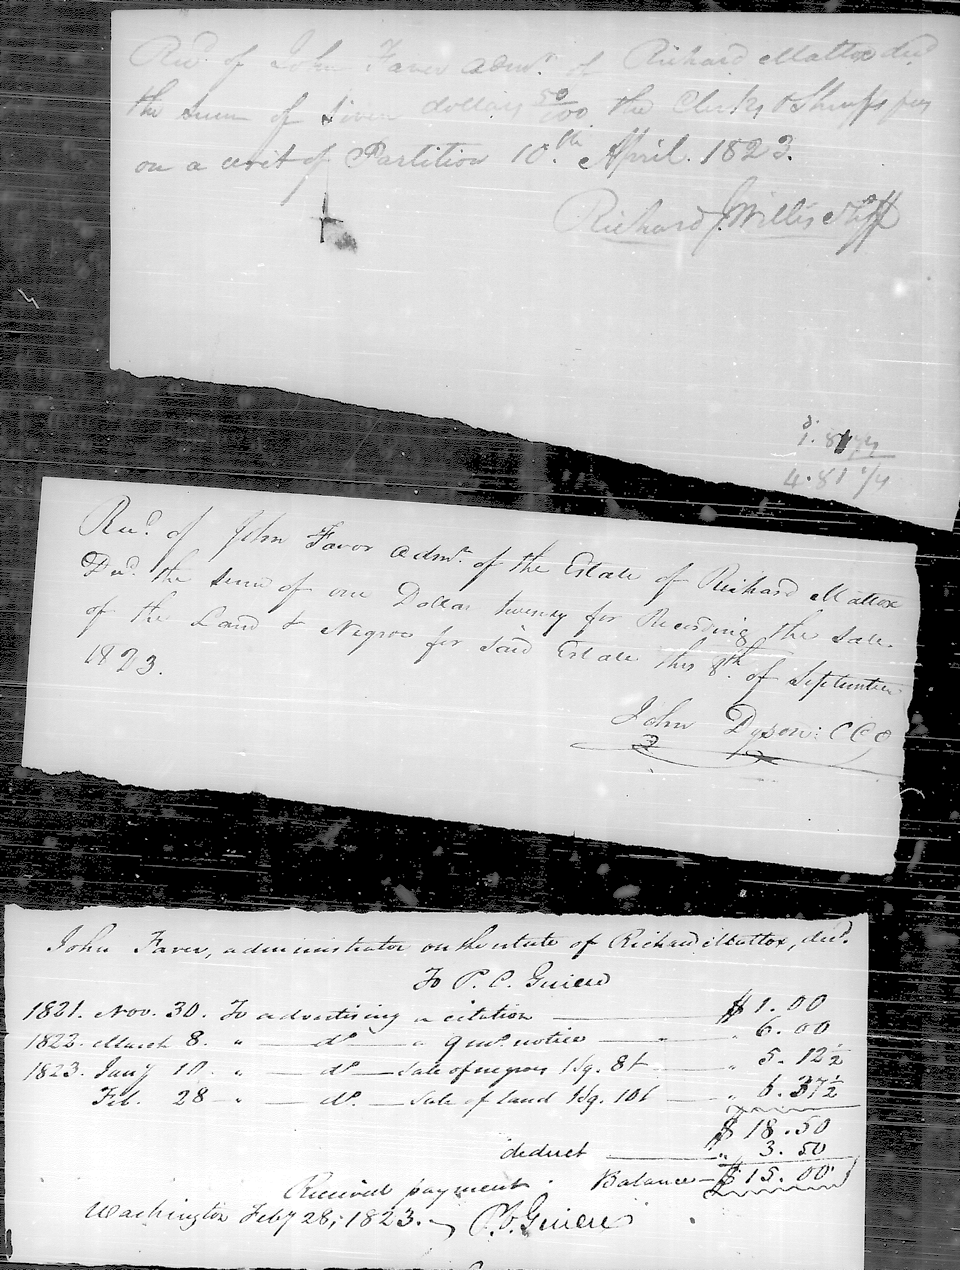 Recd. of John Faver admr. of Richard Mattox decd
the sum of Seven dollars 50/100 the Clerks & Sheriffs fees
on a writ of Partition 10th. April. 1823.
Richard J. Willis Shff
4.81 1/4
Recd. of John Favor admr. of the Estate of Richard Mattox
Decd. the sum of one Dollar twenty for Recording the sale
of the Land & Negroes for said Estate this 8th. of September
1823.
John Dyson: CCO
John Faver, administrator on the estate of Richard Mattox, decd.
To P. C. Guieu
1821. Nov. 30. To advertising a citation $ 1.00
1822. March 8. " do " 9 mo. notice " 6.00
1823. Jany 10. " do Sale of negroes " 5.12½
Feb. 28 " do. Sale of land " 6.37½
$ 18.50
deduct " 3.50
Received payment. Balance $ 15.00
Washington Feby 28, 1823. P. C. Guieu